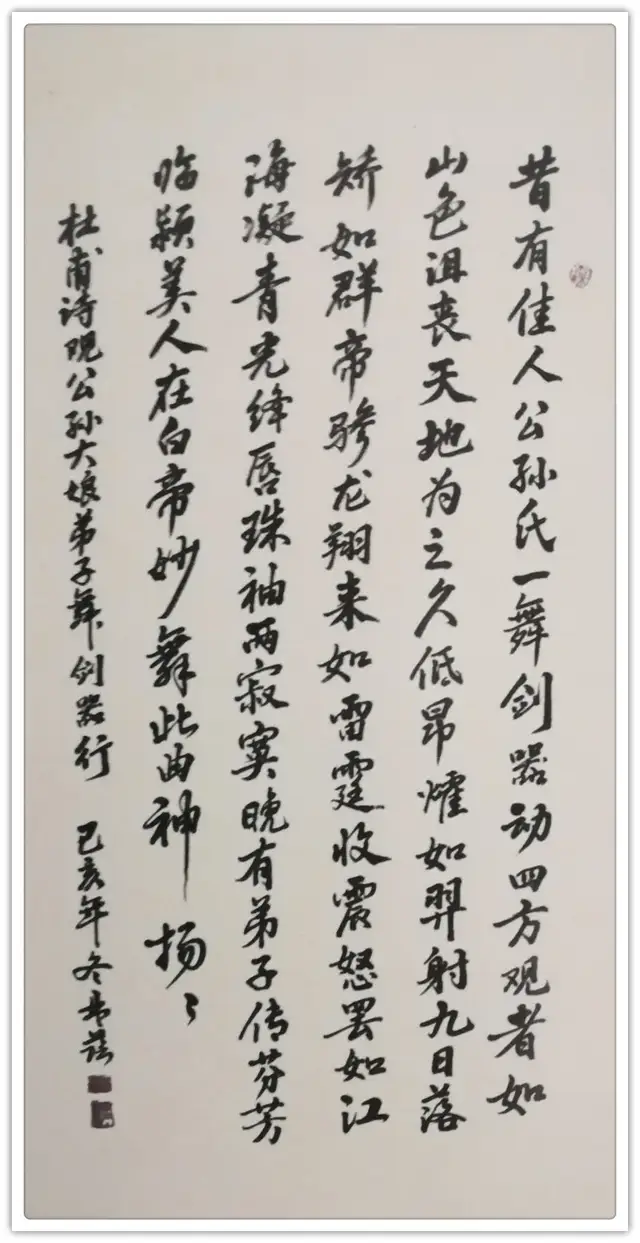 昔有佳人公孙氏一舞剑器动四方观者如
山色沮丧天地为之久低昂㸌如羿射九日落
矫如群帝骖龙翔来如雷霆收震怒罢如江
海凝青光绛唇珠袖两寂寞晚有弟子传芬芳
临颍美人在白帝妙舞此曲神扬〻
杜甫诗观公孙大娘弟子舞剑器行 己亥年冬